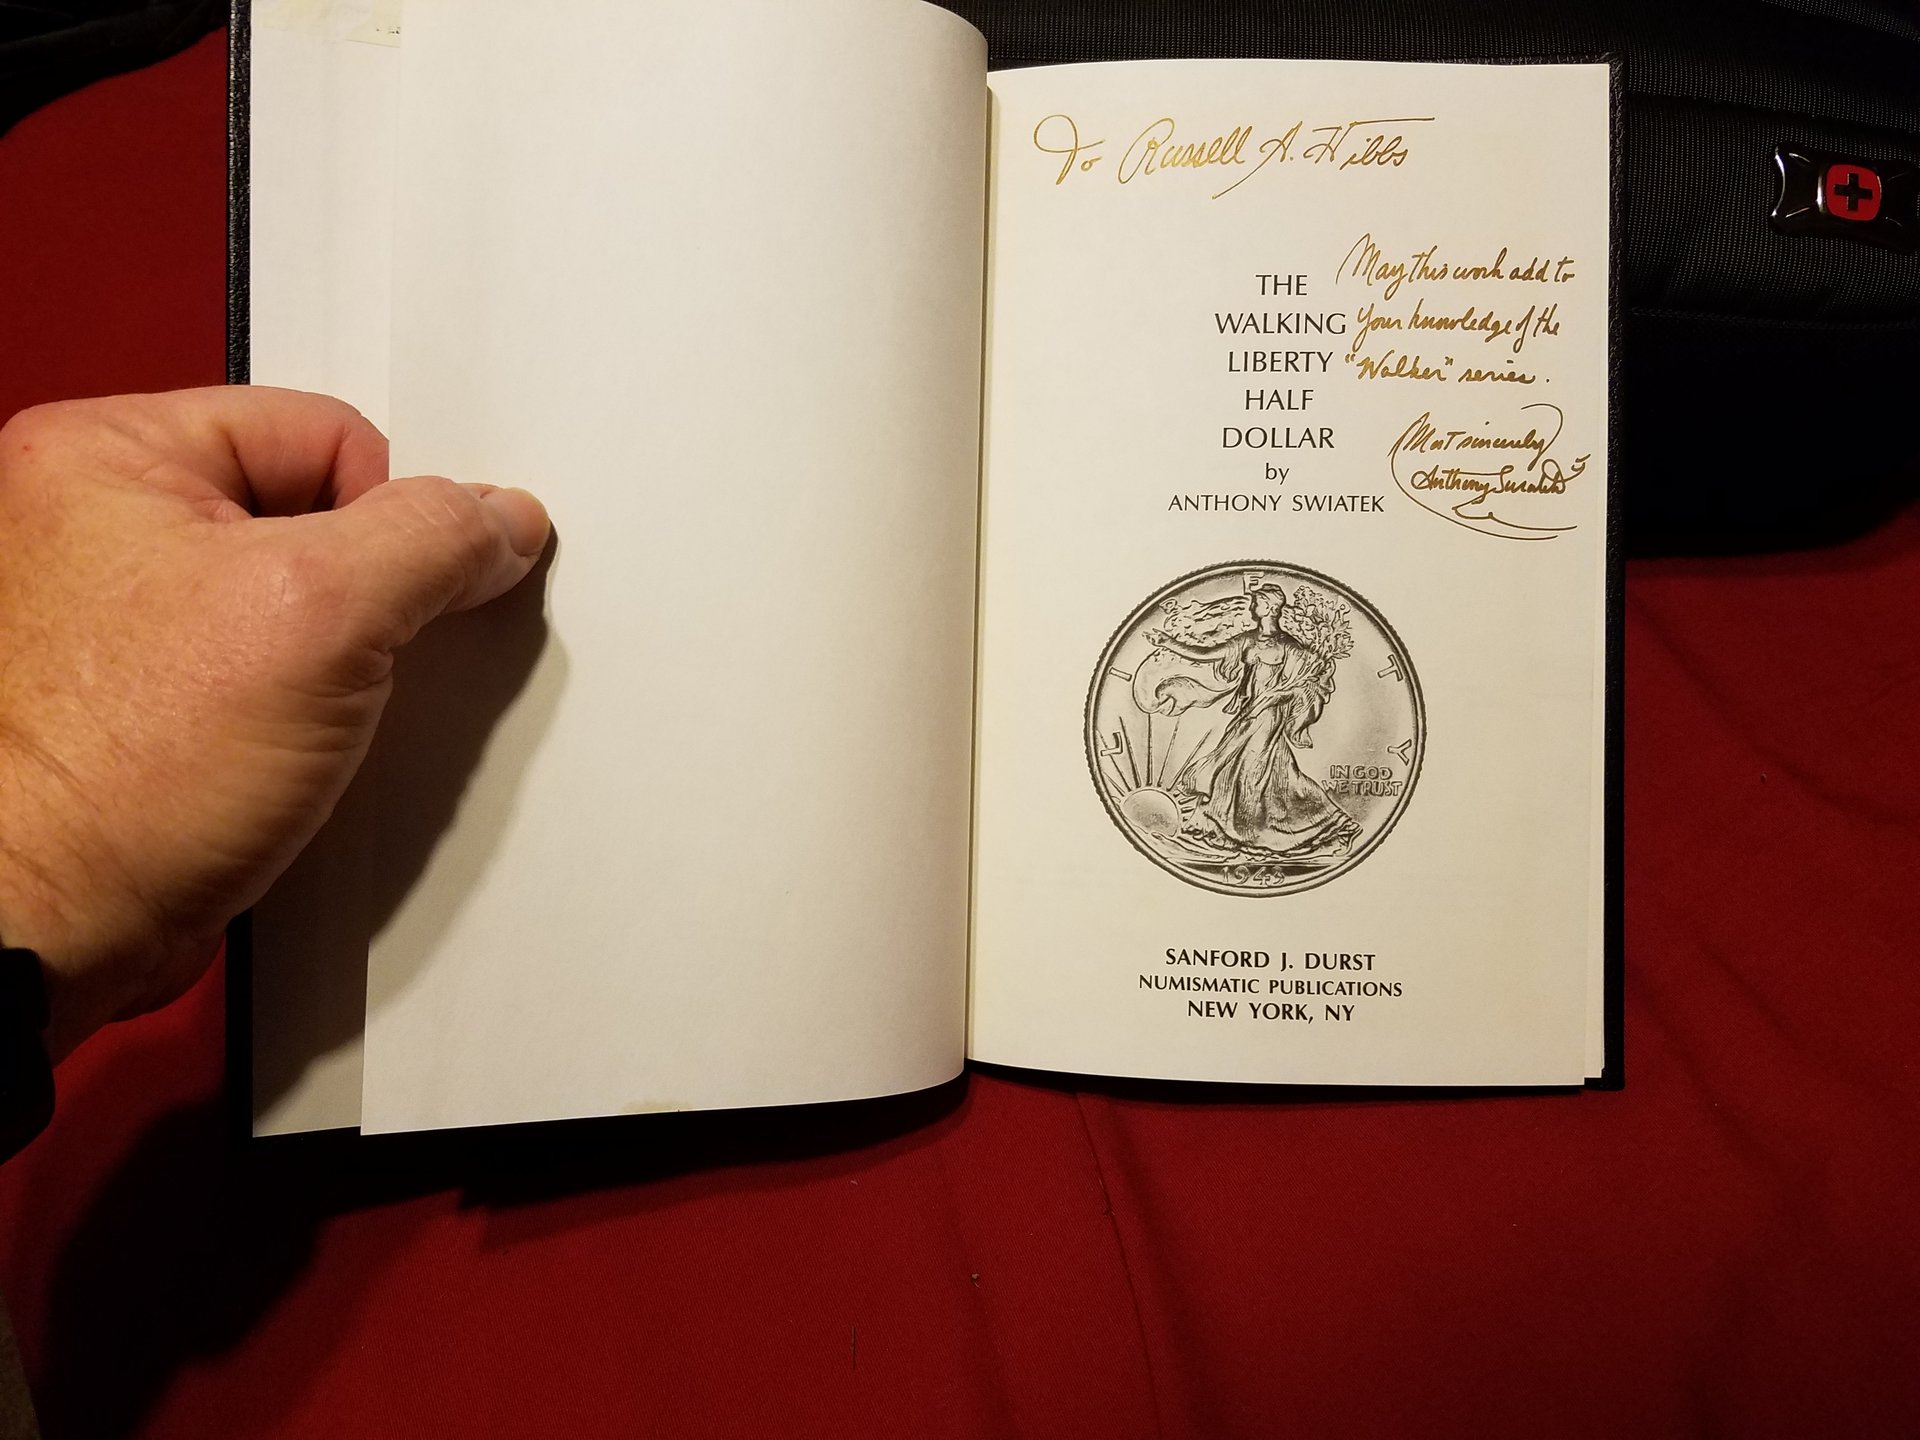 To Russell A. Hibbs
May this work add to
your knowledge of the
"Walker" series.
Most sincerely
Anthony Swiatek
THE
WALKING
LIBERTY
HALF
DOLLAR
by
ANTHONY SWIATEK
LIBERTY
IN GOD
WE TRUST
1943
SANFORD J. DURST
NUMISMATIC PUBLICATIONS
NEW YORK, NY